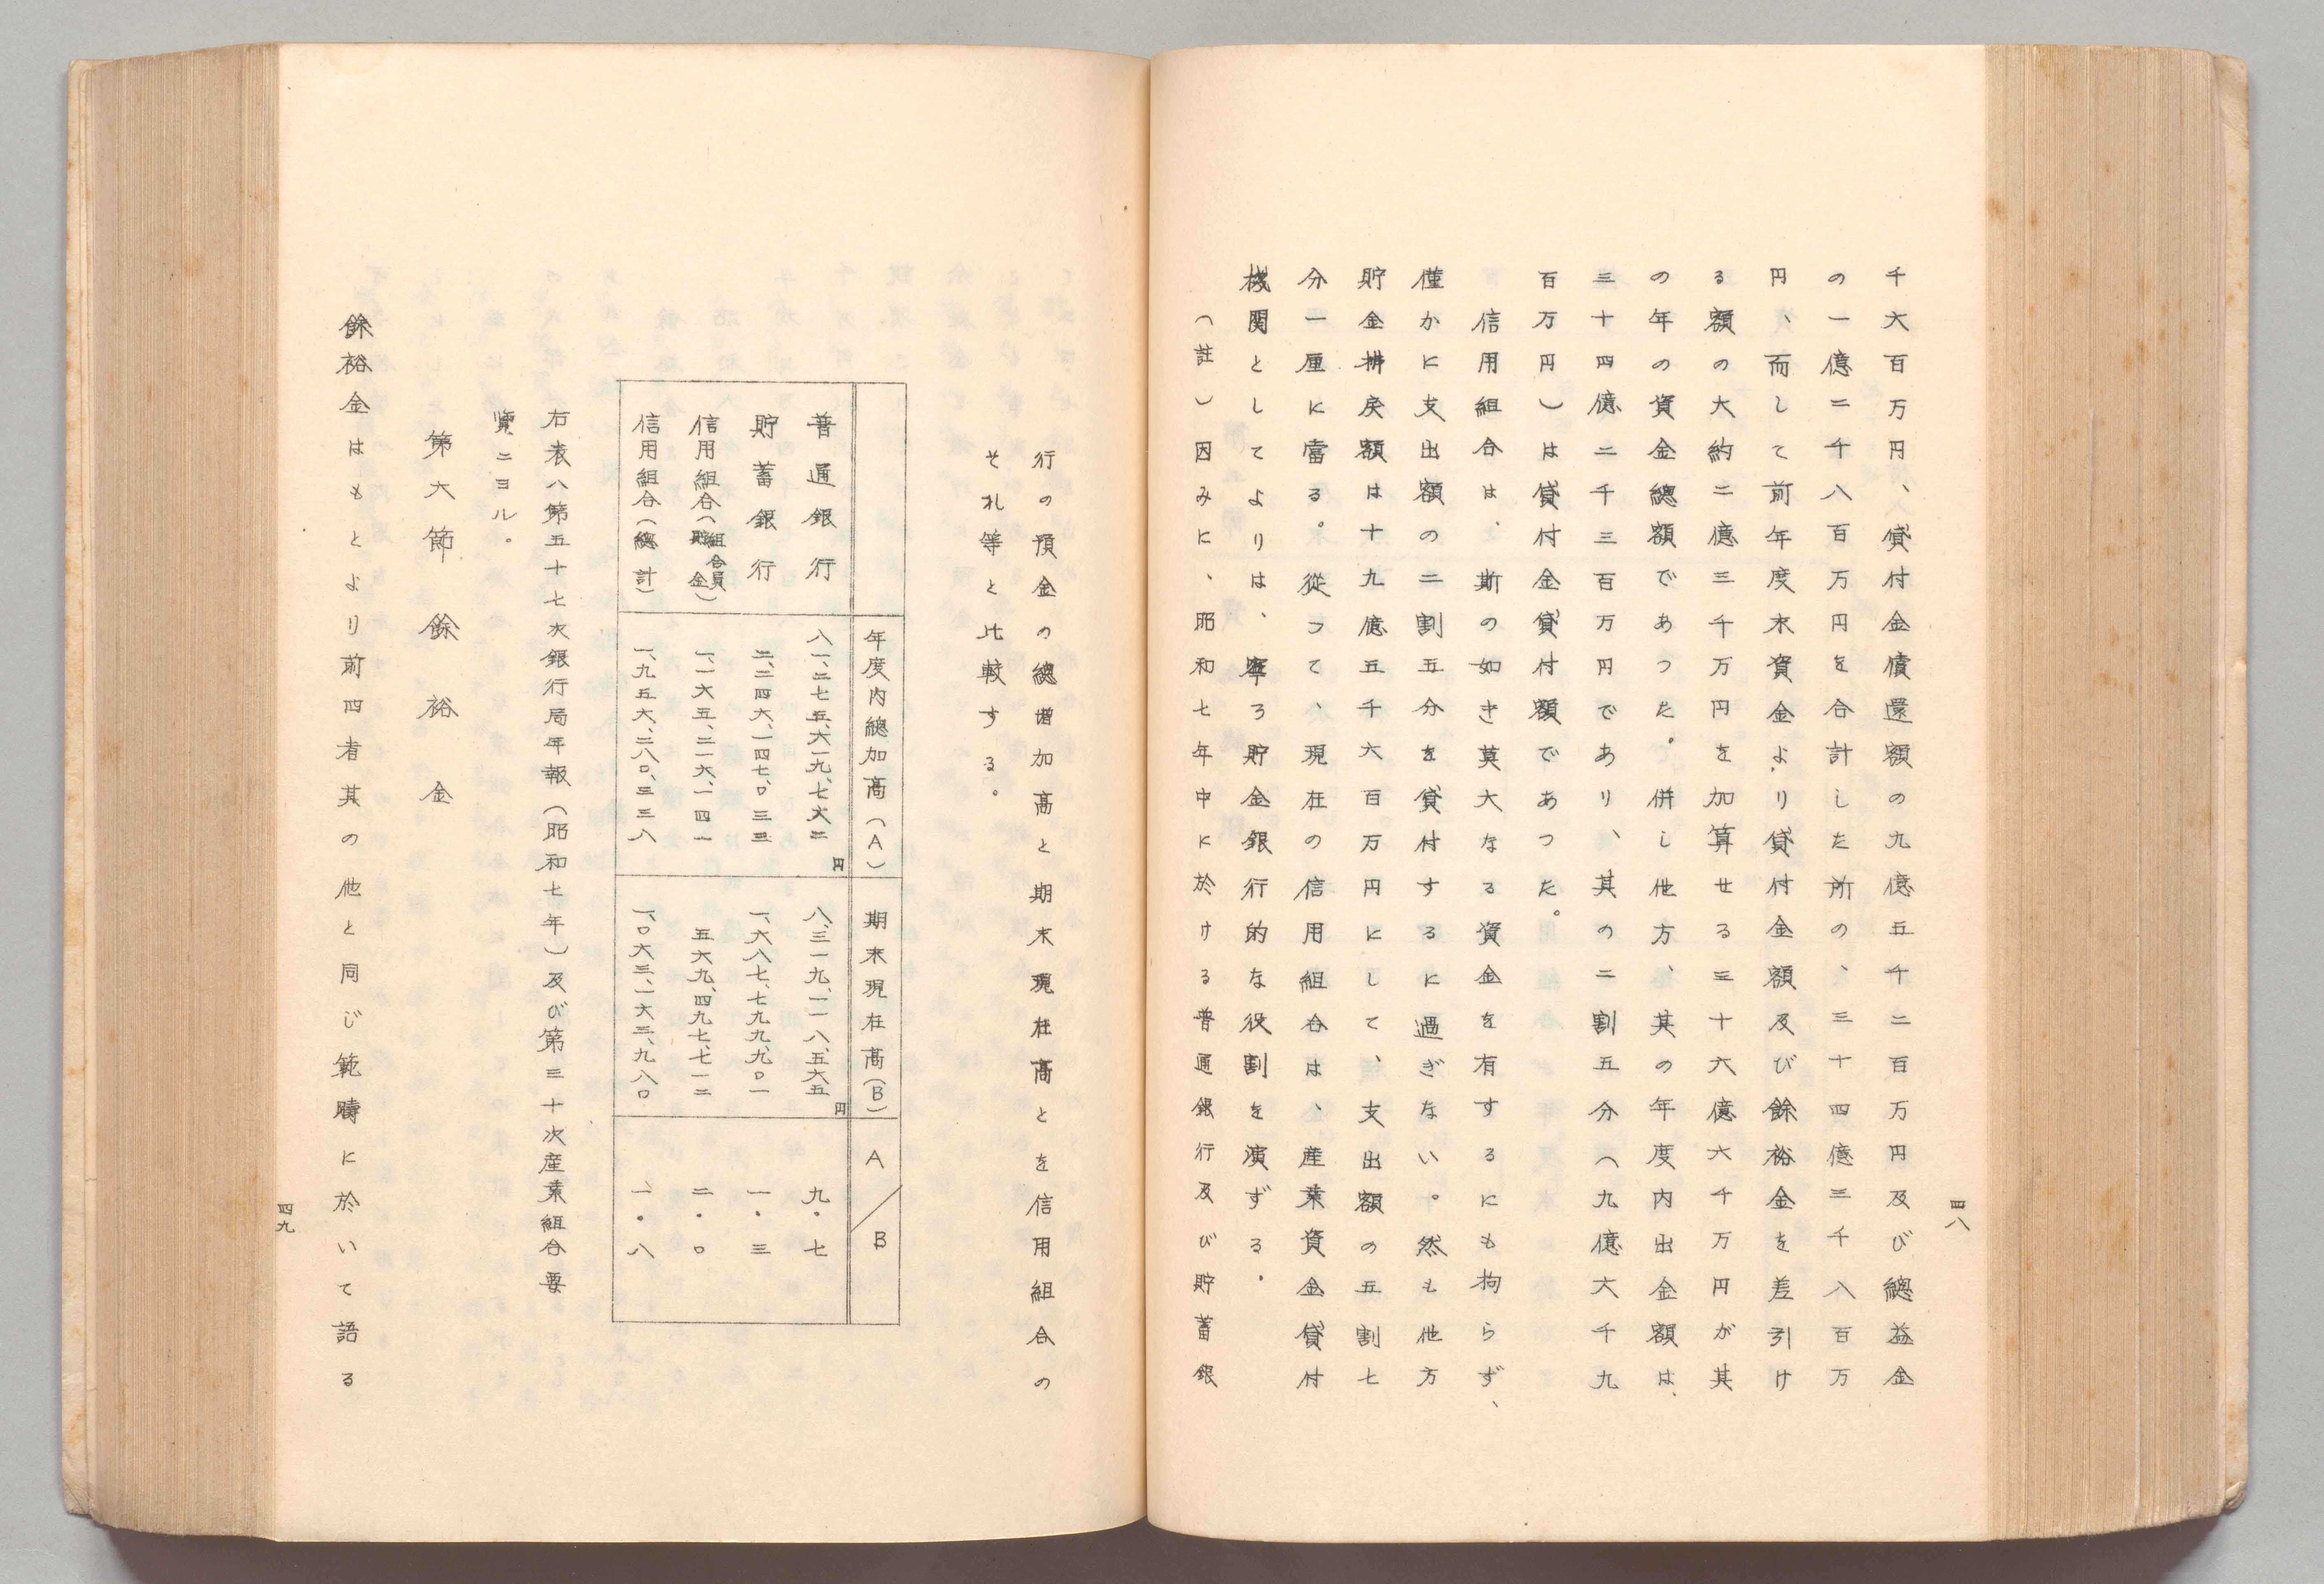 四八
千六百万円、貸付金償還額の九億五千二百万円及び總益金
の一億二千八百万円を合計した所の、三十四億三千八百万
円、而して前年度末資金より貸付金額及び餘裕金を差引け
る額の大約二億三千万円を加算せる三十六億六千万円が其
の年の資金總額であつた。併し他方、其の年度内出金額は、
三十四億二千三百万円であり、其の二割五分（九億六千九
百万円）は貸付金貸付額であつた。
信用組合は、斯の如き莫大なる資金を有するにも拘らず、
僅かに支出額の二割五分を貸付するに過ぎない。然も他方
貯金拂戻額は十九億五千六百万円にして、支出額の五割七
分一厘に當る。從つて、現在の信用組合は、産業資金貸付
機関としてよりは、寧ろ貯金銀行的な役割を演ずる。
（註）因みに、昭和七年中に於ける普通銀行及び貯蓄銀
行の預金の總増加高と期末現在高とを信用組合の
そ礼等と比較する。
年度内總加高（A） 期末現在高（B） A／B
普通銀行 八一、二七五、六一九、七六二円 八、三一九、一一八、五六五円 九・七
貯蓄銀行 二、二四六、一四七、〇三三 一、六八七、七九九、九〇一 一・三
信用組合（組合員貯金） 一、一六五、二一六、一四一 五六九、四九七、七一二 二・〇
信用組合（總計） 一、九五六、二八〇、三三八 一、〇六三、一六三、九八〇 一・八
右表ハ第五十七次銀行局年報（昭和七年）及び第三十次産業組合要
覽ニヨル。
第六節　餘裕金
餘裕金はもとより前四者其の他と同じ範疇に於いて語る
四九